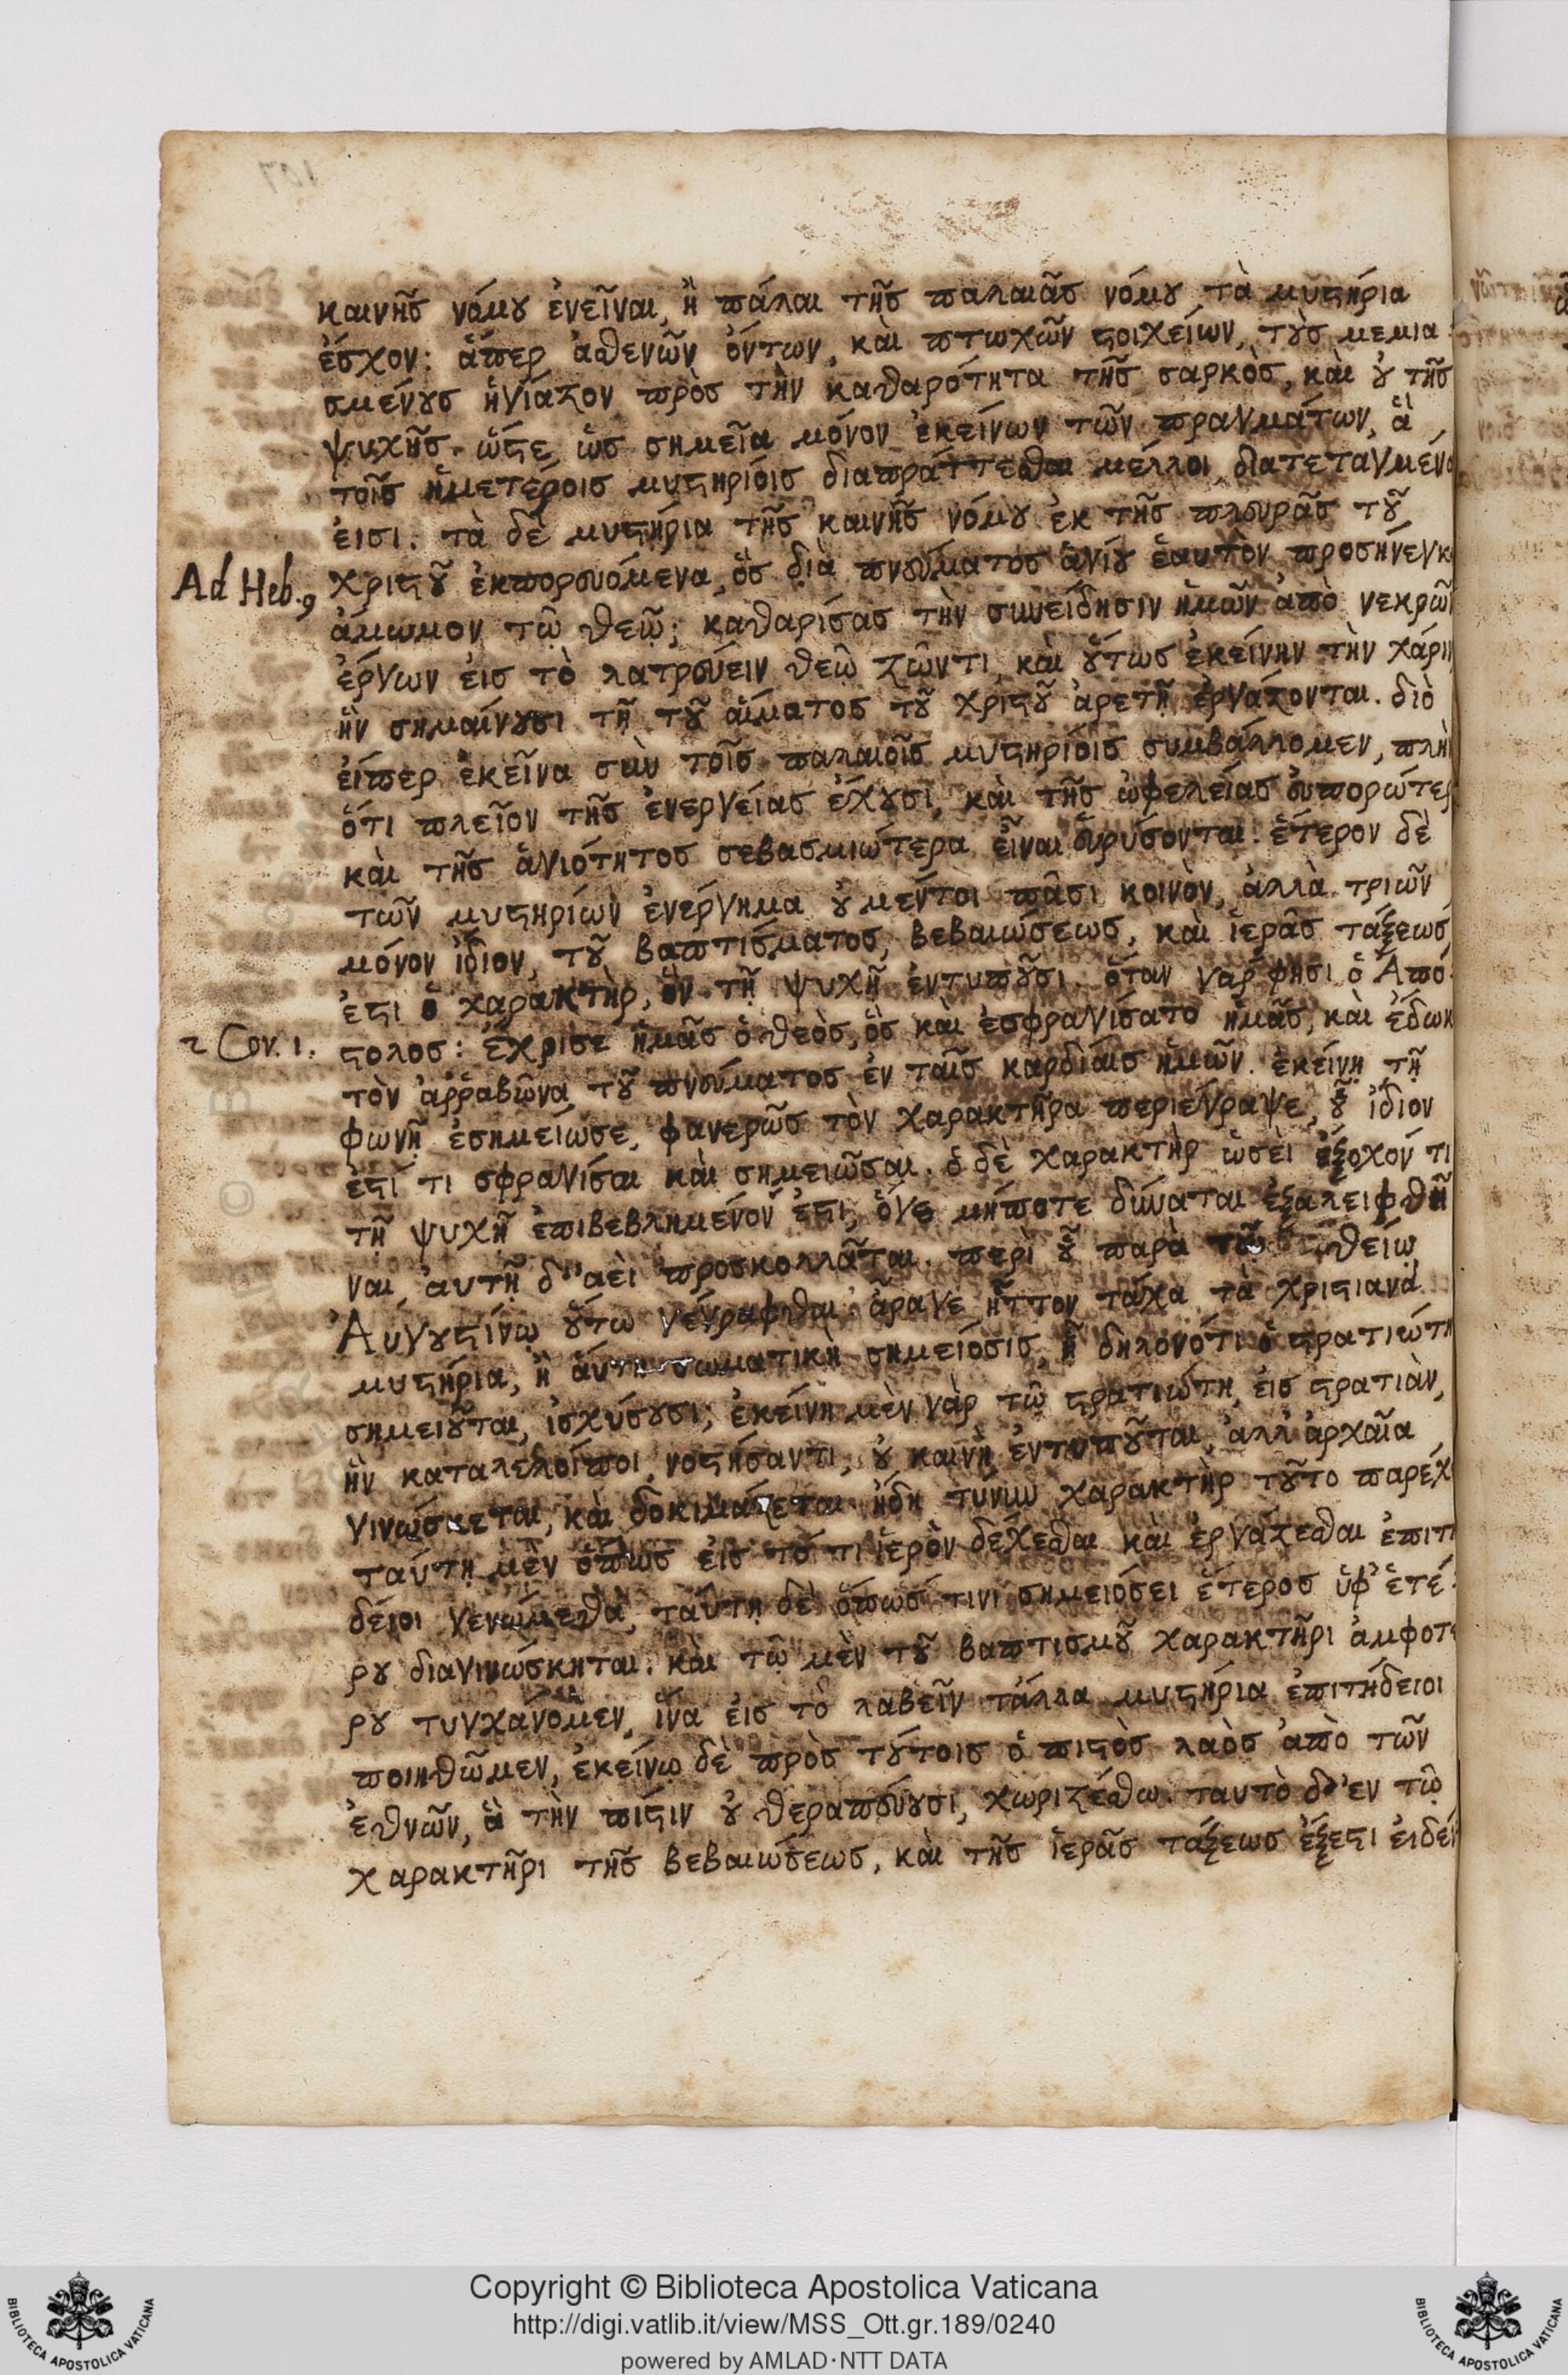 καινῆς νόμȣ ἐνεῖναι, ἢ πάλαι τῆς παλαιᾶς νόμȣ τὰ μυϛήρια
ἔσχον: ἅπερ ἀσθενῶν ὄντων, καὶ πτωχῶν ϛοιχείων, τȣ̀ς μεμια-
σμένȣς ἡγίαζον πρὸς τὴν καθαρότητα τῆς σαρκὸς, καὶ ȣ̓ τῆς
ψυχῆς. ὥϛε ὡς σημεῖα μόνον ἐκείνων τῶν πραγμάτων, ἃ
τοῖς ἡμετέροις μυϛηρίοις διαπράττεσθαι μέλλοι, διατεταγμένα
ἐισι. τὰ δὲ μυϛήρια τῆς καινῆς νόμȣ ἐκ τῆς πλευρᾶς τȣ͂
Ad Heb. 9 χριϛȣ͂ ἐκπορευόμενα, ὅς διὰ πνεύματος ἁγίȣ ἑαυτὸν προσήνεγκ
ἄμωμον τῷ θεῷ; καθαρίσας τὴν συνείδησιν ἡμῶν ἀπὸ νεκρῶν
ἔργων ἐις τὸ λατρεύειν θεῷ ζῶντι, καὶ ȣ̔́τως ἐκείνην τὴν χάριν
ἣν σημαίνȣσι τῇ τȣ͂ αἵματος τȣ͂ χριϛȣ͂ ἀρετῇ ἐργάζονται. διὸ
ἐίπερ ἐκεῖνα σὺν τοῖς παλαιοῖς μυϛηρίοις συμβάλλομεν, πλὴν
ὅτι πλεῖον τῆς ἐνεργείας ἔχȣσι, καὶ τῆς ὠφελείας ἐυπορώτερ
καὶ τῆς ἁγιότητος σεβασμιώτερα εἶναι ἑυρύσονται. ἕτερον δὲ
τῶν μυϛηρίων ἐνέργημα ȣ̓ μέντοι πᾶσι κοινὸν, ἀλλὰ τριῶν
μόνον ἴδιον, τȣ͂ βαπτίσματος, βεβαιώσεως, καὶ ἱερᾶς τάξεως,
ἔϛι ὁ χαρακτὴρ, ὃν τῇ ψυχῇ ἐντυπȣ͂σι. ὅταν γὰρ φησι ὁ Ἀπό-
2 Cor. 1. ϛολος: ἔχρισε ἡμᾶς ὁ θεὸς, ὃς καὶ ἐσφραγίσατο ἡμᾶς, καὶ ἔδωκ
τὸν ἀῤῥαβῶνα τȣ͂ πνεύματος ἐν ταῖς καρδίαις ἡμῶν. ἐκείνῃ τῇ
φωνῇ ἐσημείωσε, φανερῶς τὸν χαρακτῆρα περιέγραψε, ȣ̔͂ ἴδιον
ἐϛί τι σφραγίσαι καὶ σημειῶσαι. ὁ δὲ χαρακτὴρ ὡσεὶ ἔξοχόν τι
τῇ ψυχῇ ἐπιβεβλημένον ἐϛι, ὅγε μήποτε δύναται ἐξαλειφθῆ
ναι, ἀυτῇ δ' ἀεὶ προσκολλᾶται. περὶ ȣ̔͂ παρὰ τῷ θείῳ
Ἀυγȣϛίνῳ ȣ̔́τω γέγραφθαι: ἆραγε ἧττον τάχα τὰ χριϛιανὰ
μυϛήρια, ἢ ἅυτη σωματικὴ σημείοσις, ᾗ δηλονότι ὁ ϛρατιώτη
σημειȣ͂ται, ἰσχύσȣσι; ἐκείνη μὲν γὰρ τῷ ϛρατιώτῃ, ἐις ϛρατιὰν,
ἣν καταλελοίποι, νοϛήσαντι, ȣ̓ καινὴ ἐντυπȣ͂ται, ἀλλ' ἀρχαῖα
γινώσκεται, καὶ δοκιμάζεται. ἤδη τύνυν χαρακτὴρ τȣ͂το παρέχ
ταύτῃ μὲν ὅπως ἐις τό τι ἱερὸν δέχεσθαι καὶ ἐργάζεσθαι ἐπιτη
δέιοι γενώμεθα, ταύτῃ δὲ ὅπως τινὶ σημειόσει ἕτερος ὑφ' ἑτέ-
ρȣ διαγινώσκηται. καὶ τῷ μὲν τȣ͂ βαπτισμȣ͂ χαρακτῆρι ἀμφοτέ
ρȣ τυγχάνομεν, ἵνα ἐις τὸ λαβεῖν τἄλλα μυϛήρια ἐπιτήδειοι
ποιηθῶμεν, ἐκείνῳ δὲ πρὸς τȣ́τοις ὁ πιϛὸς λαὸς ἀπὸ τῶν
ἐθνῶν, ἃ τὴν πίϛιν ȣ̓ θεραπεύȣσι, χωριζέσθω. ταυτὸ δ' ἐν τῷ
χαρακτῆρι τῆς βεβαιώσεως, καὶ τῆς ἱερᾶς τάξεως ἔξεϛι ἐιδεῖ
Copyright © Biblioteca Apostolica Vaticana
http://digi.vatlib.it/view/MSS_Ott.gr.189/0240
powered by AMLAD·NTT DATA
BIBLIOTECA APOSTOLICA VATICANA
BIBLIOTECA APOSTOLICA VATICANA